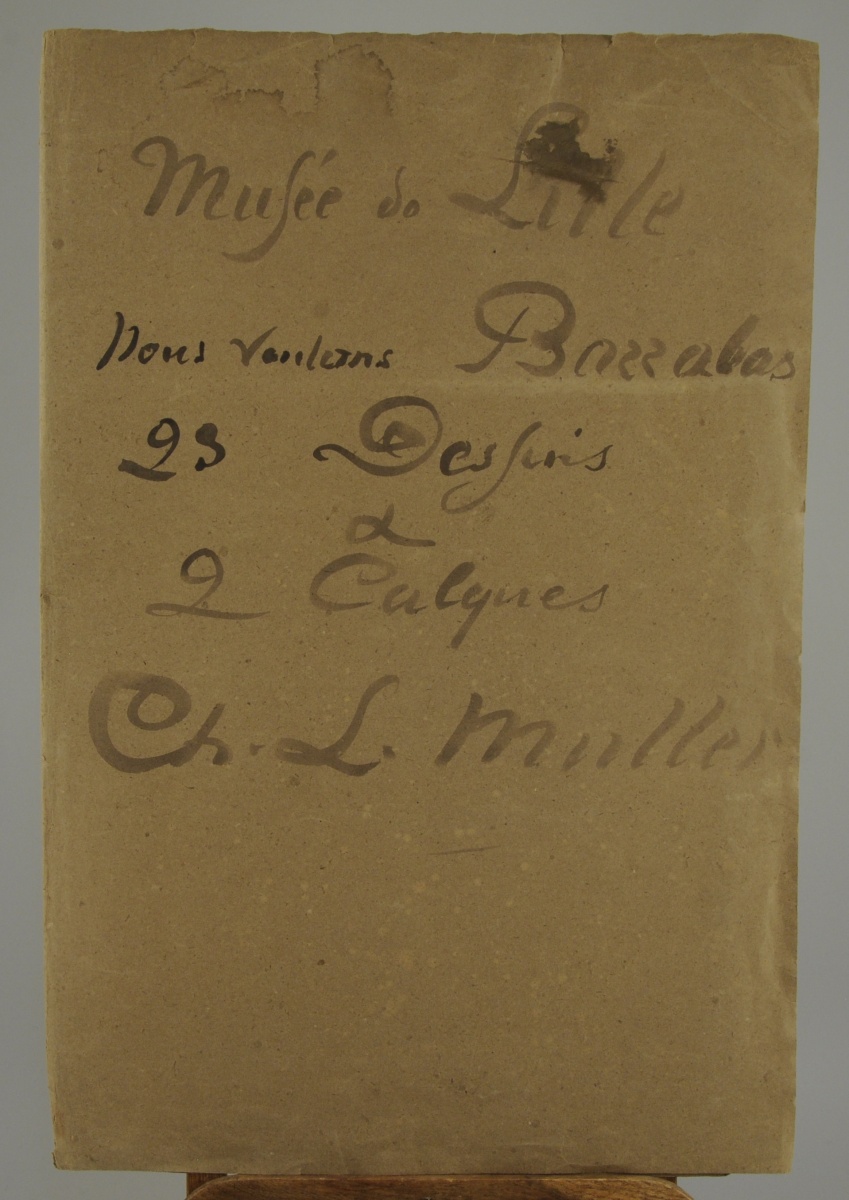 Musée de Lille
Nous voulons Barrabas
23 Dessins
&
2 Calques
Ch. L. Muller